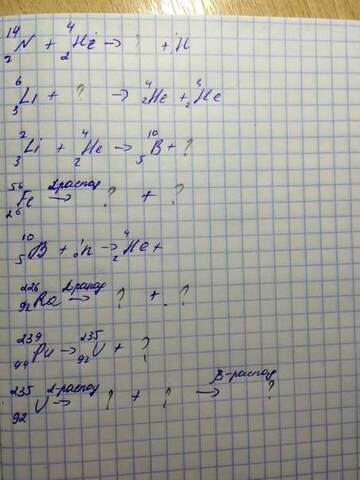 ¹⁴₂N + ⁴₂He → ? + ¹H
⁶₃Li + ? → ⁴₂He + ⁴₂He
⁷₃Li + ⁴₂He → ¹⁰₅B + ?
⁵⁶₂₆Fe 2-распад → ? + ?
¹⁰₅B + ¹₀n → ⁴₂He +
²²⁶₉₂Ra 2-распад → ? + ?
²³⁹₉₄Pu → ²³⁵₉₂U + ?
²³⁵₉₂U 2-распад → ? + ? β-распад → ?